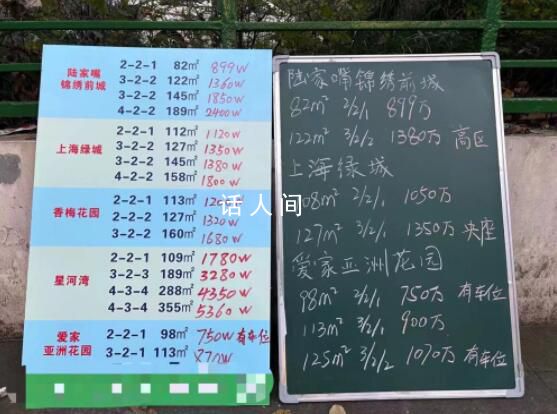 陆家嘴
锦绣前城
2-2-1 82㎡ 899W
3-2-2 122㎡ 1360W
3-2-2 145㎡ 1850W
4-2-2 189㎡ 2400W
上海绿城
2-2-1 112㎡ 1120W
3-2-2 127㎡ 1350W
3-2-2 145㎡ 1380W
4-2-2 158㎡ 1800W
香梅花园
2-2-1 113㎡
2-2-2 127㎡ 1320
3-2-2 160㎡ 1680W
星河湾
2-2-1 109㎡ 1780W
3-2-3 189㎡ 3280W
4-3-4 288㎡ 4350W
4-3-4 355㎡ 5360W
爱家
亚洲花园
2-2-1 98㎡ 750W 有车位
3-2-1 113㎡ 870W
话人间
陆家嘴锦绣前城
82m² 2/2/1 899万
122m² 3/2/2 1380万 高区
上海绿城
108m² 2/2/1 1050万
127m² 3/2/2 1350万 央座
爱家亚洲花园
98m² 2/2/1 750万 有车位
113m² 3/2/1 900万
125m² 3/2/2 1070万 有车位